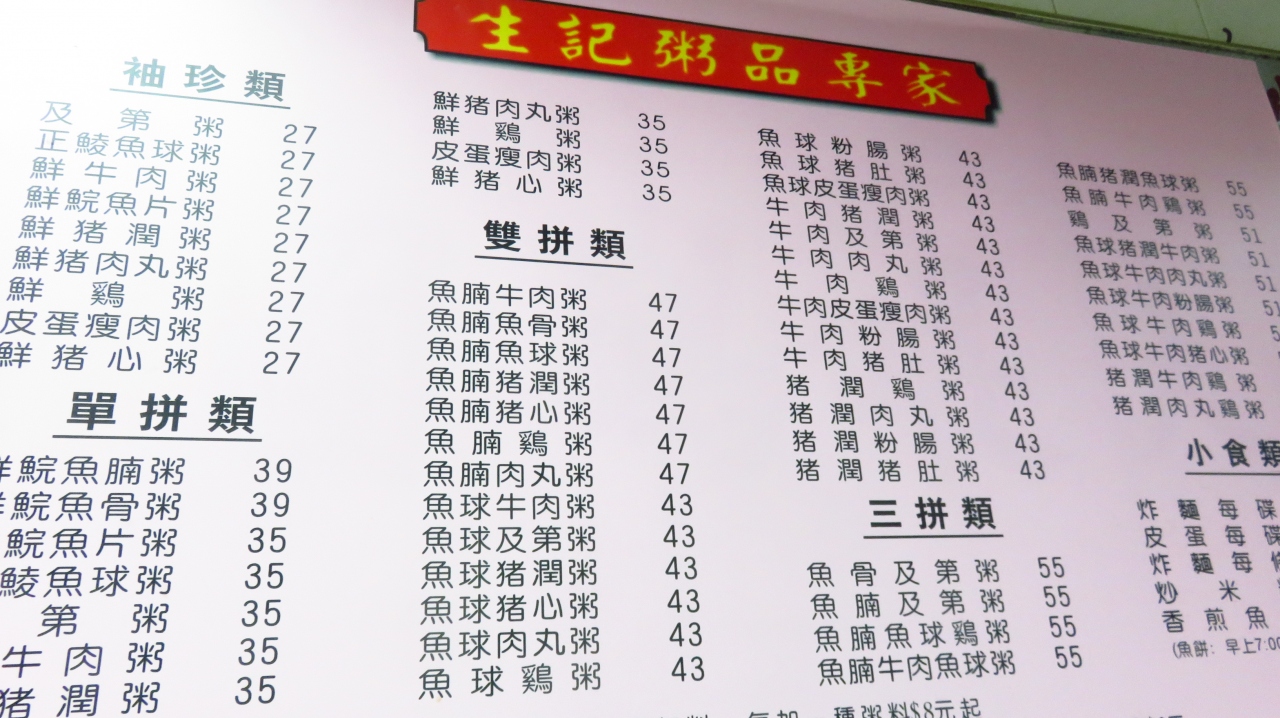 生記粥品專家
袖珍類
及第粥 27
正鯪魚球粥 27
鮮牛肉粥 27
鮮鯇魚片粥 27
鮮猪潤粥 27
鮮猪肉丸粥 27
鮮鷄粥 27
皮蛋瘦肉粥 27
鮮猪心粥 27
單拼類
鮮鯇魚腩粥 39
鮮鯇魚骨粥 39
鯇魚片粥 35
鯪魚球粥 35
第粥 35
牛肉粥 35
猪潤粥 35
鮮猪肉丸粥 35
鮮鷄粥 35
皮蛋瘦肉粥 35
鮮猪心粥 35
雙拼類
魚腩牛肉粥 47
魚腩魚骨粥 47
魚腩魚球粥 47
魚腩猪潤粥 47
魚腩猪心粥 47
魚腩鷄粥 47
魚腩肉丸粥 47
魚球牛肉粥 43
魚球及第粥 43
魚球猪潤粥 43
魚球猪心粥 43
魚球肉丸粥 43
魚球鷄粥 43
魚球粉腸粥 43
魚球猪肚粥 43
魚球皮蛋瘦肉粥 43
牛肉猪潤粥 43
牛肉及第粥 43
牛肉肉丸粥 43
牛肉鷄粥 43
牛肉皮蛋瘦肉粥 43
牛肉粉腸粥 43
牛肉猪肚粥 43
猪潤鷄粥 43
猪潤肉丸粥 43
猪潤粉腸粥 43
猪潤猪肚粥 43
三拼類
魚骨及第粥 55
魚腩及第粥 55
魚腩魚球鷄粥 55
魚腩牛肉魚球粥 55
魚腩猪潤魚球粥 55
魚腩牛肉鷄粥 55
鷄及第粥 51
魚球猪潤牛肉粥 51
魚球牛肉肉丸粥 51
魚球牛肉粉腸粥 51
魚球牛肉鷄粥
魚球牛肉猪心粥
猪潤牛肉鷄粥
猪潤肉丸鷄粥
小食類
炸麵每碟
皮蛋每碟
炸麵每條
炒米
香煎魚
(魚餅：早上7:00
每加一種粥料$8元起